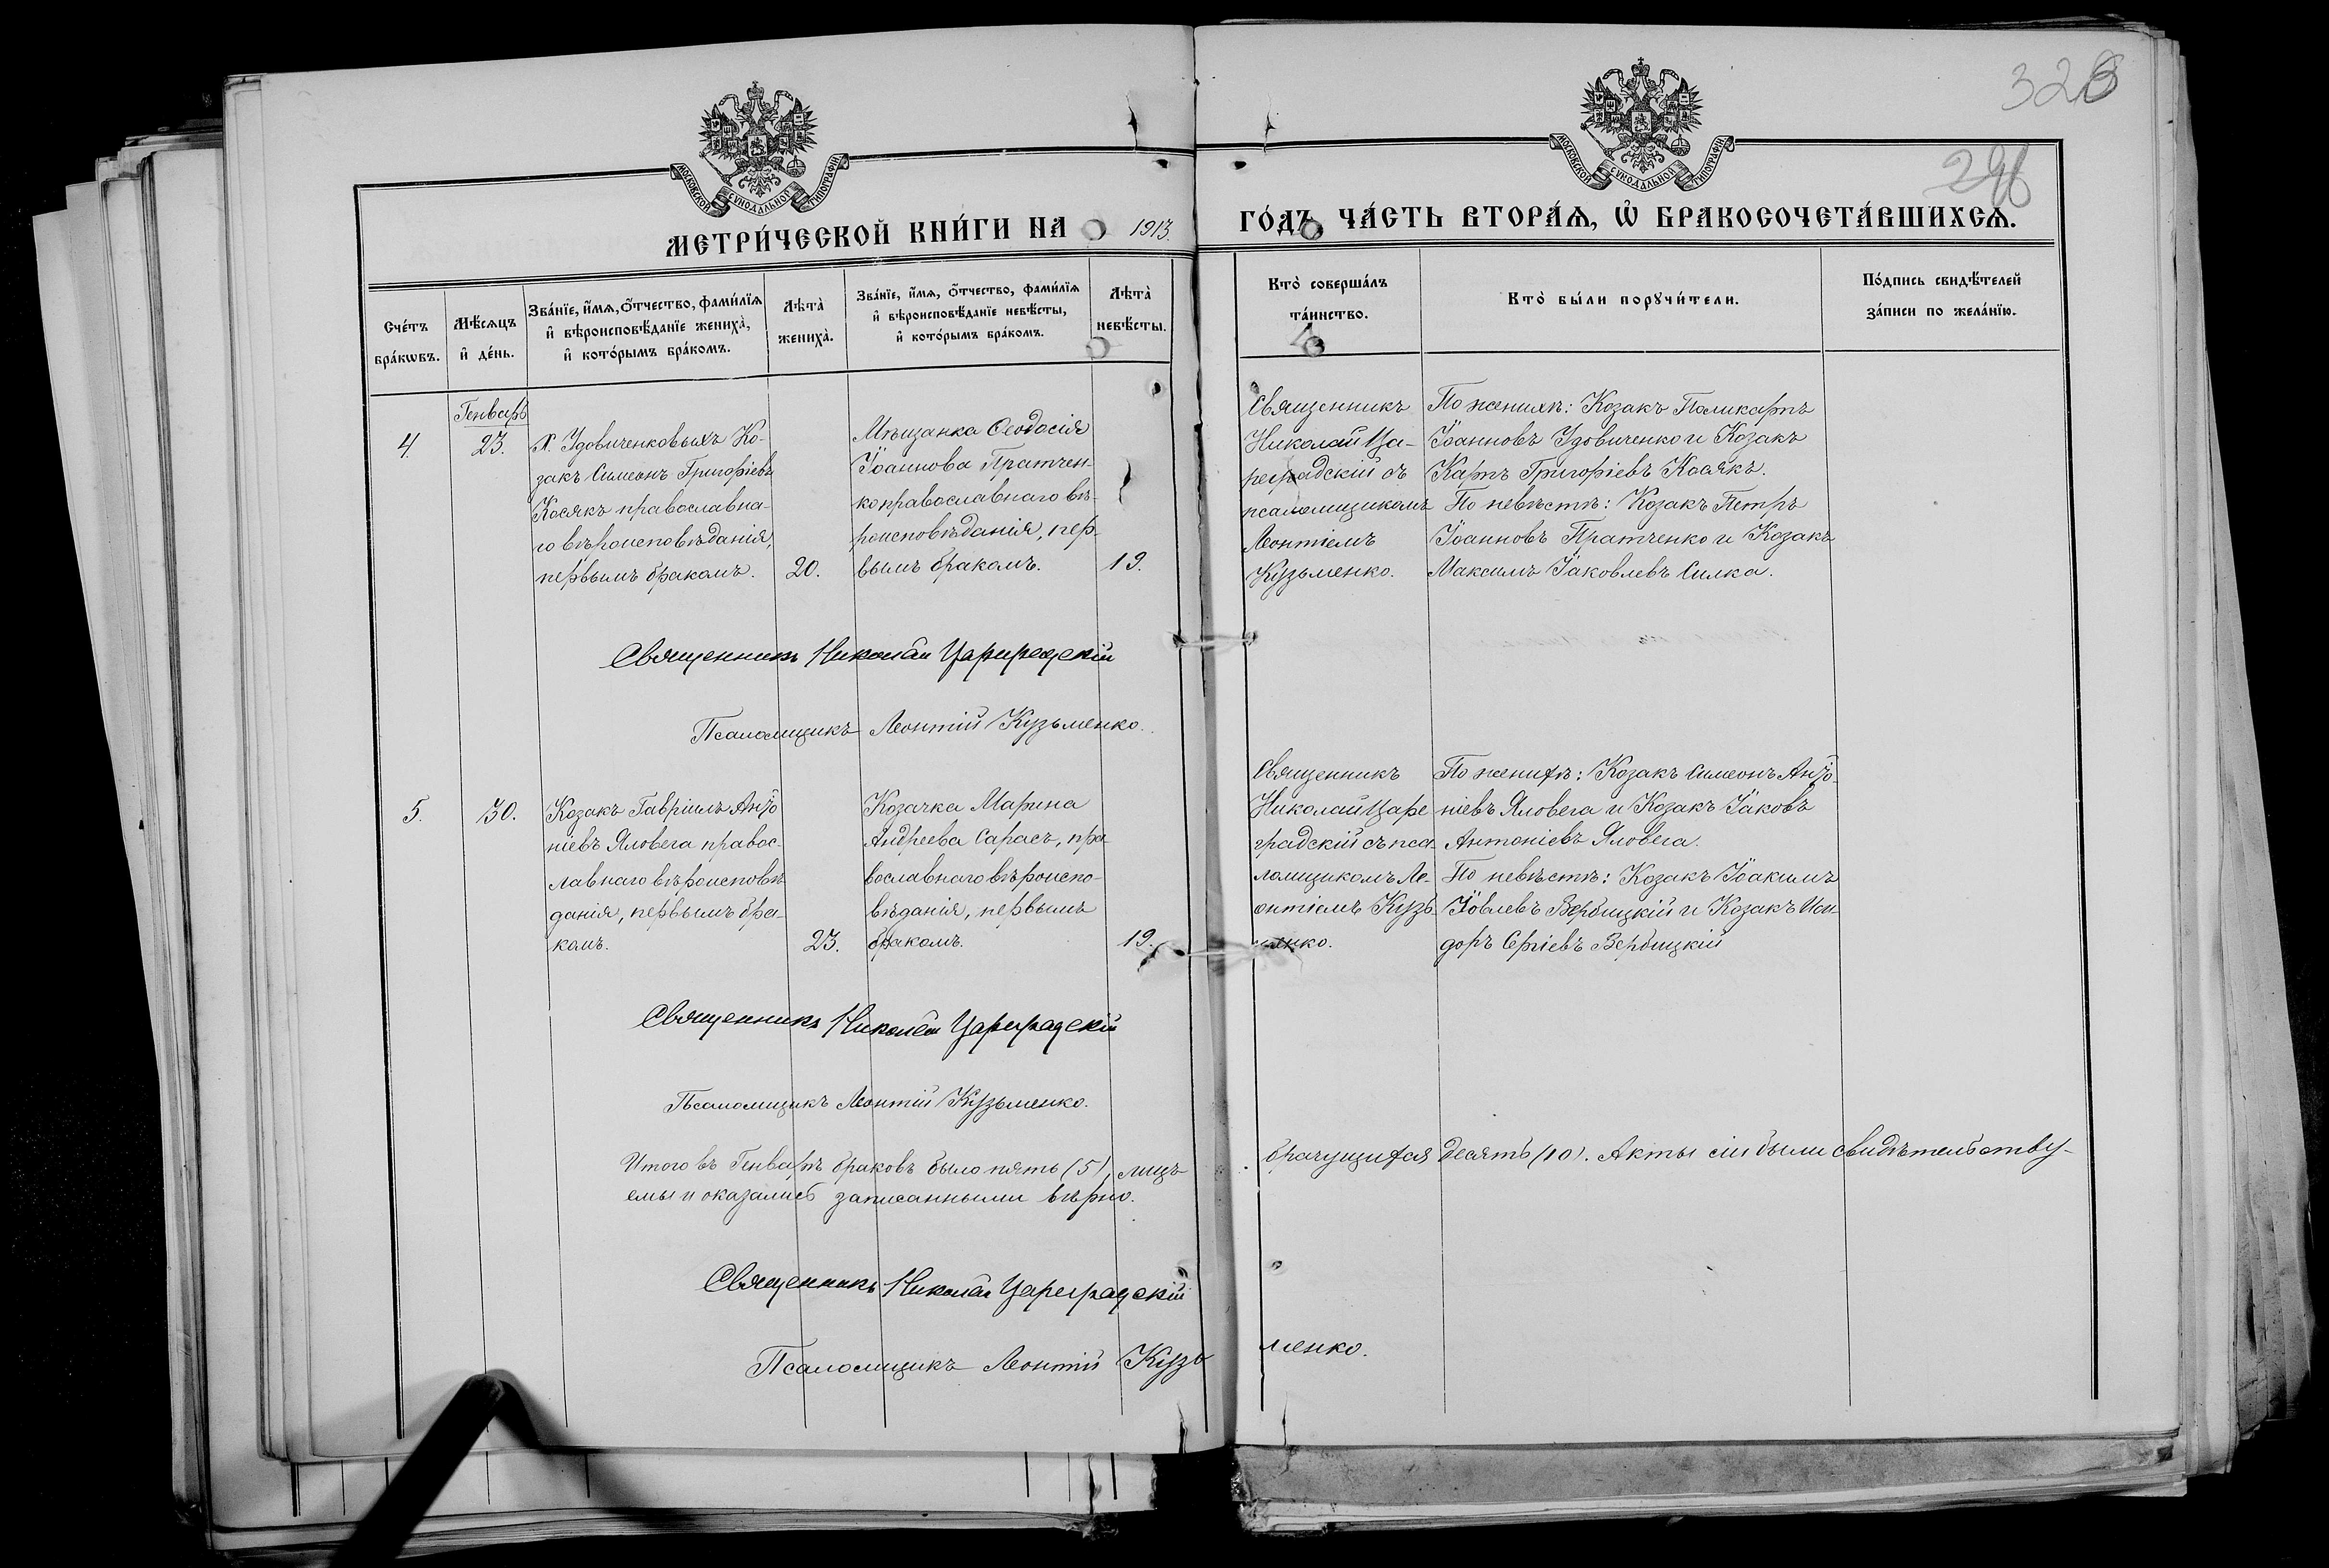 328
296
МОСКОВСКОЙ СѴНОДАЛЬНОЙ ТИПОГРАФІИ
МОСКОВСКОЙ СѴНОДАЛЬНОЙ ТИПОГРАФІИ
МЕТРИ́ЧЕСКОЙ КНИ́ГИ НА 1913. ГО́ДЪ, ЧА́СТЬ ВТОРА́Ѧ, Ѽ БРАКОСОЧЕТА́ВШИХСѦ.
Сче́тъ
бра́кѡвъ.
Мѣ́сѧцъ
и҆ де́нь.
Зва́нїе, и҆́мѧ, ѻ҆́тчество, фами́лїѧ
и҆ вѣроисповѣ́данїе жениха̀,
и҆ кото́рымъ бра́комъ.
Лѣта̀
жениха̀.
Зва́нїе, и҆́мѧ, ѻ҆́тчество, фами́лїѧ
и҆ вѣроисповѣ́данїе невѣ́сты,
и҆ кото́рымъ бра́комъ.
Лѣта̀
невѣ́сты.
Кто̀ соверша́лъ
та́инство.
Кто̀ бы́ли порꙋчи́тели.
По́дпись свидѣ́телей
за́писи по жела́нїю.
4.
Генварь
23.
х. Удовиченковыхъ Ко-
закъ Симеонъ Григоріевъ
Косякъ православна-
го вѣроисповѣданія,
первымъ бракомъ.
20.
Мѣщанка Ѳеодосія
Іоаннова Пратчен-
ко православнаго вѣ-
роисповѣданія, пер-
вымъ бракомъ.
19.
Священникъ
Николай Ца-
реградскій съ
псаломщикомъ
Леонтіемъ
Кузьменко.
По женихѣ: Козакъ Поликарпъ
Іоанновъ Удовиченко и Козакъ
Карпъ Григоріевъ Косякъ.
По невѣстѣ: Козакъ Петръ
Іоанновъ Пратченко и Козакъ
Максимъ Іаковлевъ Силка.
Священникъ Николай Цареградскій
Псаломщикъ Леонтій Кузьменко.
5.
30.
Козакъ Гавріилъ Анто
ніевъ Яловега правос-
лавнаго вѣроисповѣ
данія, первымъ бра-
комъ.
23.
Козачка Марина
Андреева Сарасъ, пра-
вославнаго вѣроиспо-
вѣданія, первымъ
бракомъ.
19.
Священникъ
Николай Царе
градскій съ пса
ломщикомъ Ле-
онтіемъ Кузь
менко.
По женихѣ: Козакъ Симеонъ Анто-
ніевъ Яловега и Козакъ Іаковъ
Антоніевъ Яловега.
По невѣстѣ: Козакъ Іоакимъ
Іовлевъ Вербицкій и Козакъ Иси-
доръ Сергіевъ Вербицкій
Священникъ Николай Цареградскій
Псаломщикъ Леонтій Кузьменко.
Итого въ Генварѣ браковъ было пять (5), лицъ брачущихся десять (10). Акты сіи были свидѣтельству-
емы и оказались записанными вѣрно.
Священникъ Николай Цареградскій
Псаломщикъ Леонтій Кузьменко.